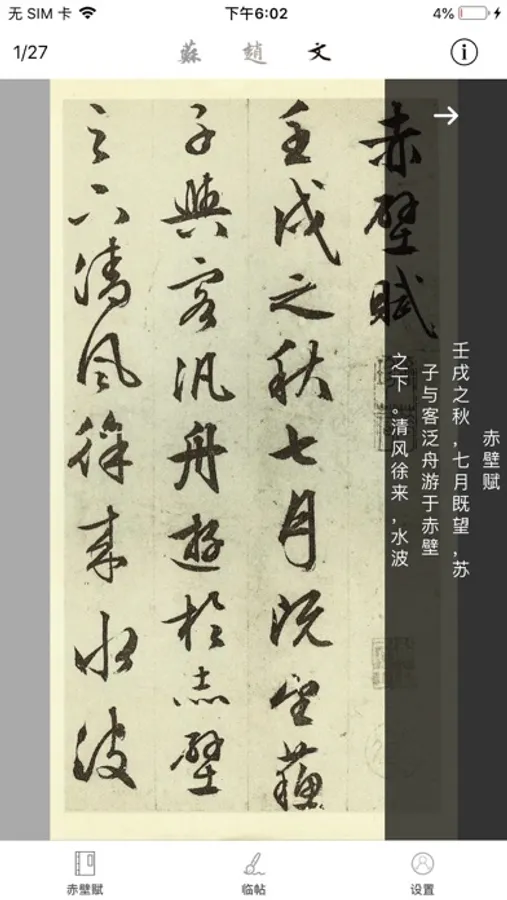 无 SIM 卡
下午6:02
4%
1/27
蘇 趙 文
赤壁賦
壬戌之秋七月既望蘓
子與客汎舟逰於赤壁
之下清風徐来水波
赤壁赋
壬戌之秋，七月既望，苏
子与客泛舟游于赤壁
之下。清风徐来，水波
赤壁赋
临帖
设置